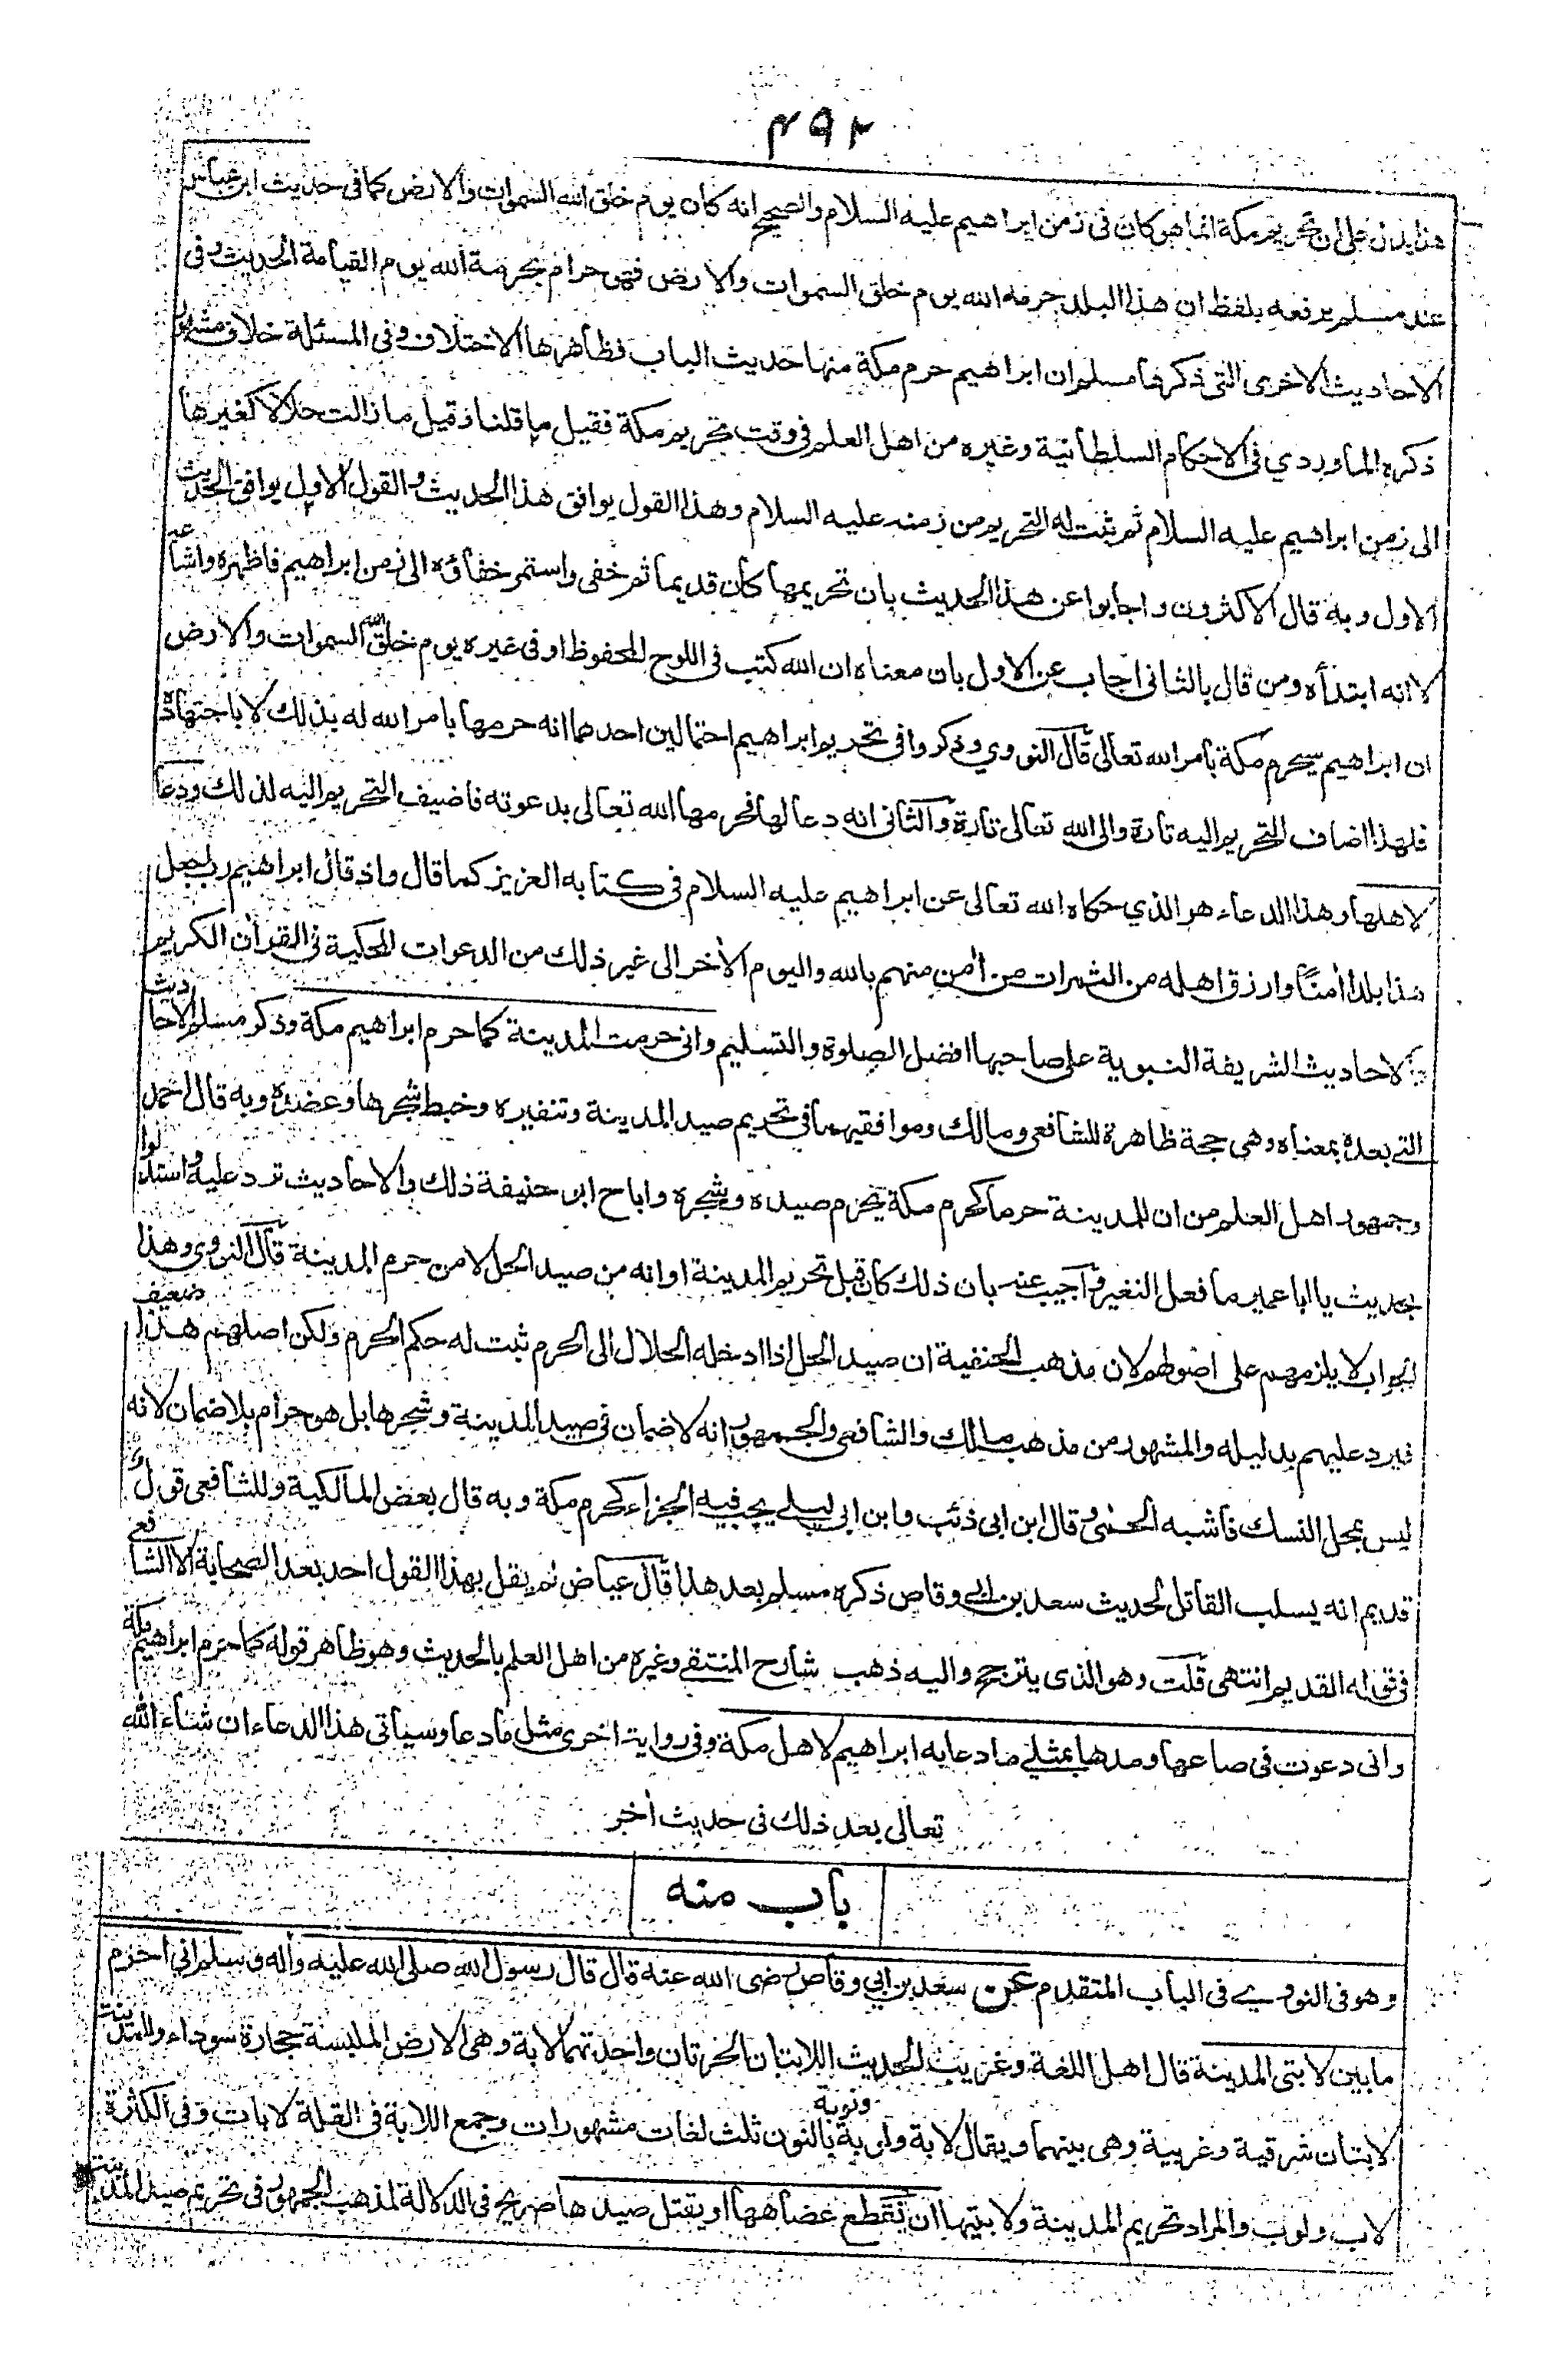 ٤٩٢
هذا يدل على ان تحريم مكة انما هو كان فى زمن ابراهيم عليه السلام والصحيح انه كان يوم خلق الله السموات والارض كما فى حديث ابن عباس
عند مسلم يرفعه بلفظ ان هذا البلد حرمه الله يوم خلق السموات والارض فهو حرام بحرمة الله يوم القيامة الحديث وفى
الاحاديث الاخرى التى ذكرها مسلم ان ابراهيم حرم مكة منها حديث الباب فظاهرها الاختلاف وفى المسئلة خلاف مشهور
ذكره الماوردي فى الاحكام السلطانية وغيره من اهل العلم فى وقت تحريم مكة فقيل ما قلنا وقيل ما زالت حلالا كغيرها
الى زمن ابراهيم عليه السلام ثم ثبت له التحريم من زمنه عليه السلام وهذا القول يوافق هذا الحديث والقول الاول يوافق الحديث
الاول وبه قال الاكثرون واجابوا عن هذا الحديث بان تحريمها كان قديما ثم خفى واستمر خفاؤه الى زمن ابراهيم فاظهره واشاعه
لا انه ابتدأه ومن قال بالثانى اجاب عن الاول بان معناه ان الله كتب فى اللوح المحفوظ او فى غيره يوم خلق الله السموات والارض
ان ابراهيم سيحرم مكة بامر الله تعالى قال النووي وذكروا فى تحريم ابراهيم احتمالين احدهما انه حرمها بامر الله له بذلك لا باجتهاده
فلهذا اضاف التحريم اليه تارة والى الله تعالى تارة والثانى انه دعا لها فحرمها الله تعالى بدعوته فاضيف التحريم اليه لذلك ودعا
لاهلها وهذا الدعاء هو الذي حكاه الله تعالى عن ابراهيم عليه السلام فى كتابه العزيز كما قال واذ قال ابراهيم رب اجعل
هذا بلدا أمنا وارزق اهله من الثمرات من أمن منهم بالله واليوم الأخر الى غير ذلك من الدعوات المحكية فى القرأن الكريم
الاحاديث الشريفة النبوية على صاحبها افضل الصلوة والتسليم وانى حرمت المدينة كما حرم ابراهيم مكة وذكر مسلم الاحاديث
التى بعده بمعناه وهى حجة ظاهرة للشافعى ومالك وموافقيهما فى تحريم صيد المدينة وتنفيره وخبط شجرها وعضده وبه قال احمد
وجمهور اهل العلم من ان للمدينة حرما كحرم مكة يحرم صيده وشجره واباح ابو حنيفة ذلك والاحاديث ترد عليه واستدلوا
بحديث يا ابا عمير ما فعل النغير واجيب عنه بان ذلك كان قبل تحريم المدينة او انه من صيد الحل لا من حرم المدينة قال النووي وهذا
الجواب لا يلزمهم على اصولهم لان مذهب الحنفية ان صيد الحل اذا ادخله الحلال الى الحرم ثبت له حكم الحرم ولكن اصلهم هذا ضعيف
فيرد عليهم بدليله والمشهور من مذهب مالك والشافعى والجمهور انه لا ضمان فى صيد المدينة وشجرها بل هو حرام بلا ضمان لانه
ليس بمحل النسك فاشبه الحمى وقال ابن ابى ذئب وابن ابى ليلى يجب فيه الجزاء كحرم مكة وبه قال بعض المالكية وللشافعى قول
قديم انه يسلب القاتل لحديث سعد بن ابى وقاص ذكره مسلم بعد هذا قال عياض لم يقل بهذا القول احد بعد الصحابة الا الشافعى
فى قوله القديم انتهى قلت وهو الذى يترجح واليه ذهب شارح المنتقى وغيره من اهل العلم بالحديث وهو ظاهر قوله كما حرم ابراهيم مكة
وانى دعوت فى صاعها ومدها بمثلى ما دعا به ابراهيم لاهل مكة وفى رواية اخرى مثل ما دعا وسيأتى هذا الدعاء ان شاء الله
تعالى بعد ذلك فى حديث أخر
باب منه
وهو فى النووي فى الباب المتقدم عن سعد بن ابى وقاص رضى الله عنه قال قال رسول الله صلى الله عليه وأله وسلم انى احرم
ما بين لابتى المدينة قال اهل اللغة وغريب الحديث اللابتان الحرتان واحدتهما لابة وهى الارض الملبسة حجارة سوداء وللمدينة
لابتان شرقية وغربية وهى بينهما ويقال لابة ولوبة ونوبة بالنون ثلث لغات مشهورات وجمع اللابة فى القلة لابات وفى الكثرة
لاب ولوب والمراد تحريم المدينة ولابتيها ان يقطع عضاهها او يقتل صيدها صريح فى الدلالة لمذهب الجمهور فى تحريم صيد المدينة